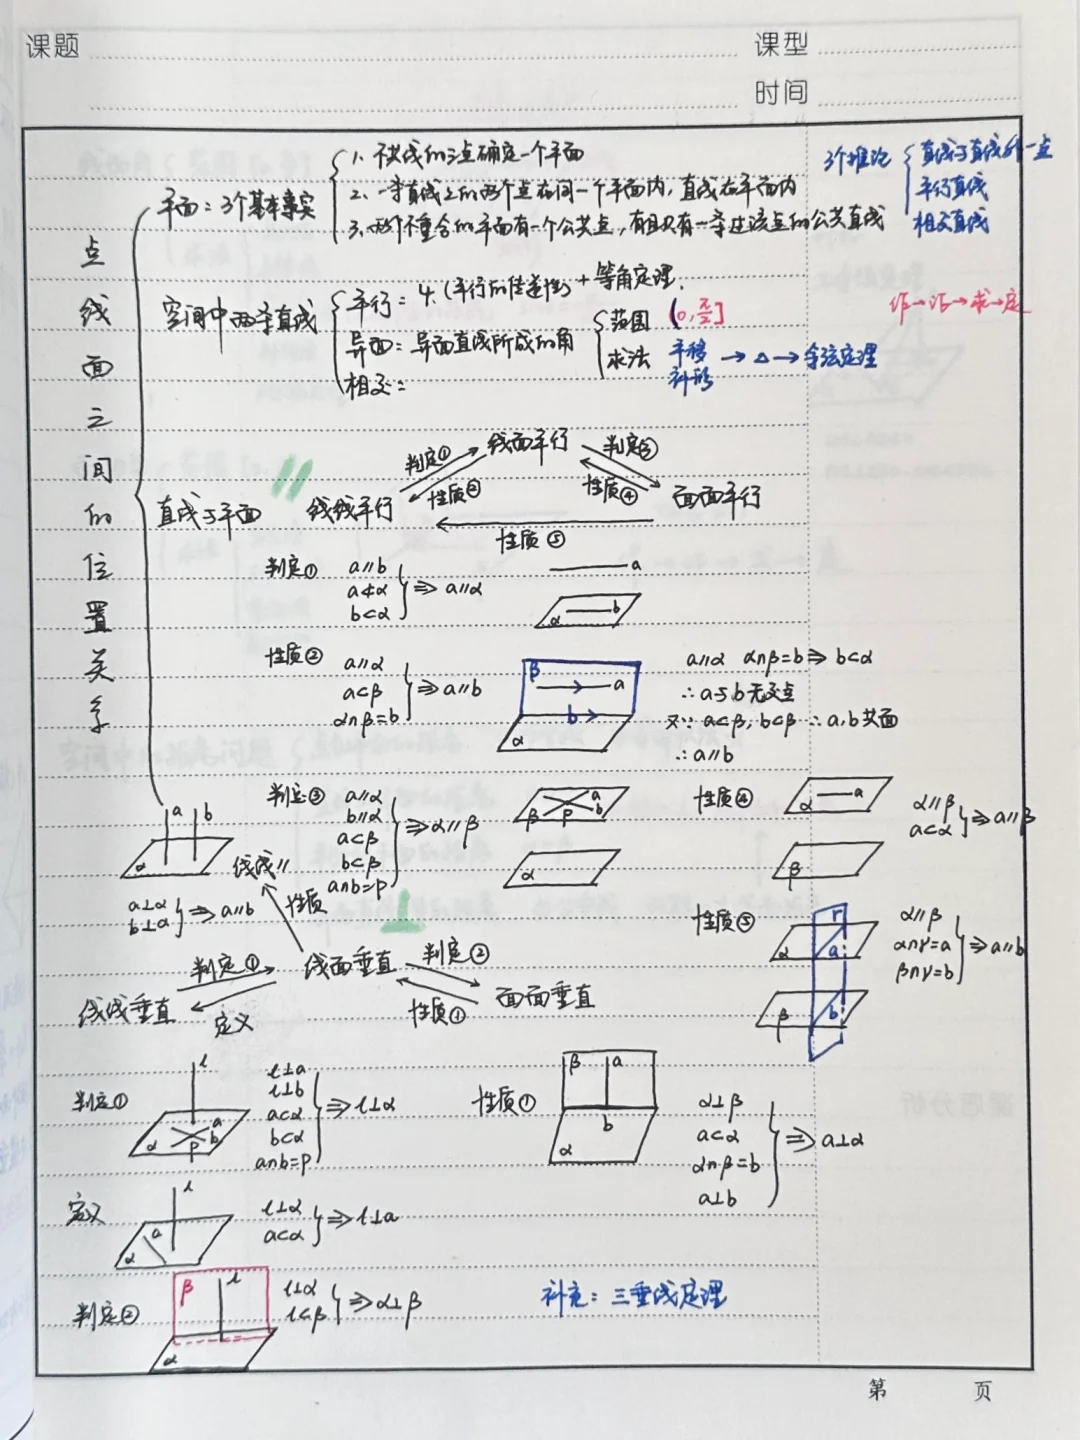 课题
课型
时间
点线面之间的位置关系
平面：3个基本事实
1. 不共线的三点确定一个平面
2. 一条直线上的两个点在同一个平面内，直线在平面内
3. 两个不重合的平面有一个公共点，有且只有一条过该点的公共直线
3个推论
直线与直线外一点
平行直线
相交直线
空间中两条直线
平行：4.（平行的传递性）+ 等角定理.
异面：异面直线所成的角
相交：
范围 (0, π/2]
求法 平移 补形 → △ → 余弦定理
作→证→求→定
直线与平面
//
线线平行
判定①
性质②
线面平行
判定③
性质④
面面平行
性质⑤
判定① a//b
a⊄α
b⊂α
⇒ a//α
a
α b
性质② a//α
a⊂β
α∩β=b
⇒ a//b
β a
b
α
a//α α∩β=b ⇒ b⊂α
∴ a与b无交点
又∵ a⊂β, b⊂β ∴ a,b共面
∴ a//b
判定③ a//α
b//α
a⊂β
b⊂β
a∩b=P
⇒ α//β
a
β P b
α
性质④
α a
β
α//β
a⊂α
⇒ a//β
性质⑤
γ
α a
β b
α//β
α∩γ=a
β∩γ=b
⇒ a//b
a b
α
a⊥α
b⊥α
⇒ a//b
线线//
性质
⊥
线线垂直
判定①
定义
线面垂直
判定②
性质①
面面垂直
判定①
l
a
α P b
l⊥a
l⊥b
a⊂α
b⊂α
a∩b=P
⇒ l⊥α
性质①
β a
b
α
α⊥β
a⊂α
α∩β=b
a⊥b
⇒ a⊥α
定义
l
a
α
l⊥α
a⊂α
⇒ l⊥a
判定②
β l
α
l⊥α
l⊂β
⇒ α⊥β
补充：三垂线定理
第 页